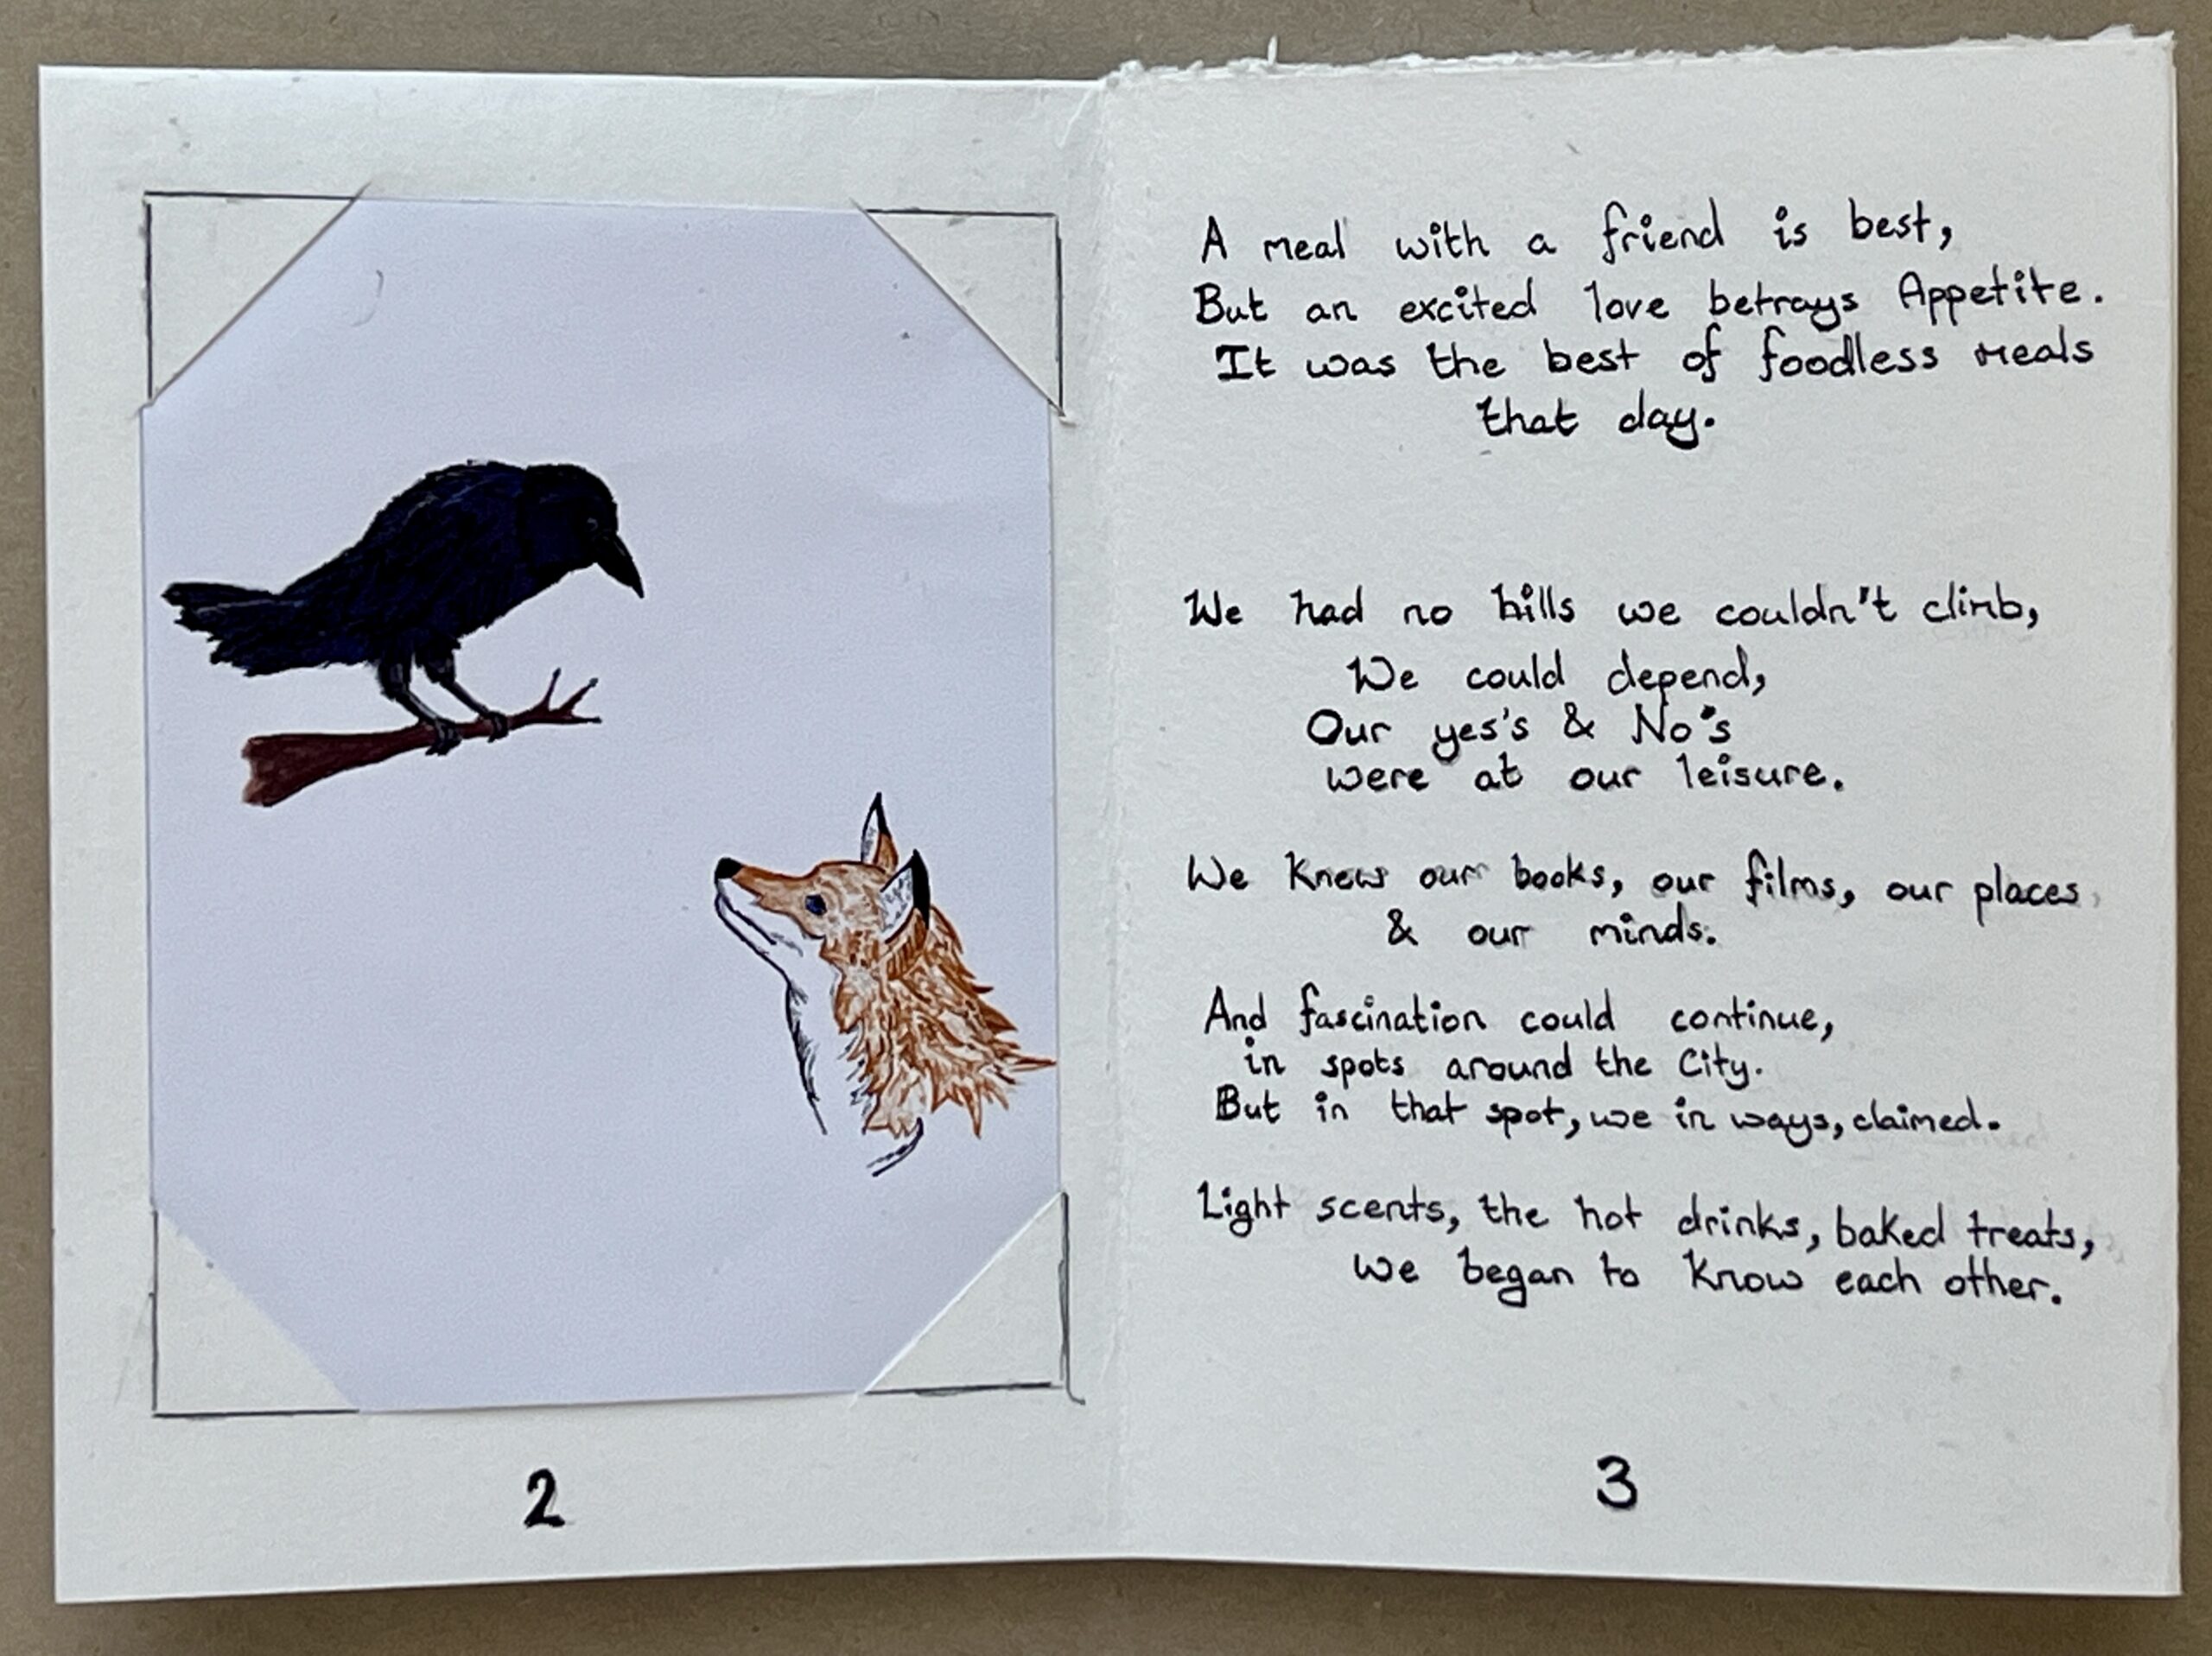 A meal with a friend is best,
But an excited love betrays Appetite.
It was the best of foodless meals
that day.
We had no hills we couldn't climb,
We could depend,
Our yes's & No's
were at our leisure.
We knew our books, our films, our places,
& our minds.
And fascination could continue,
in spots around the City.
But in that spot, we in ways, claimed.
Light scents, the hot drinks, baked treats,
we began to know each other.
2
3